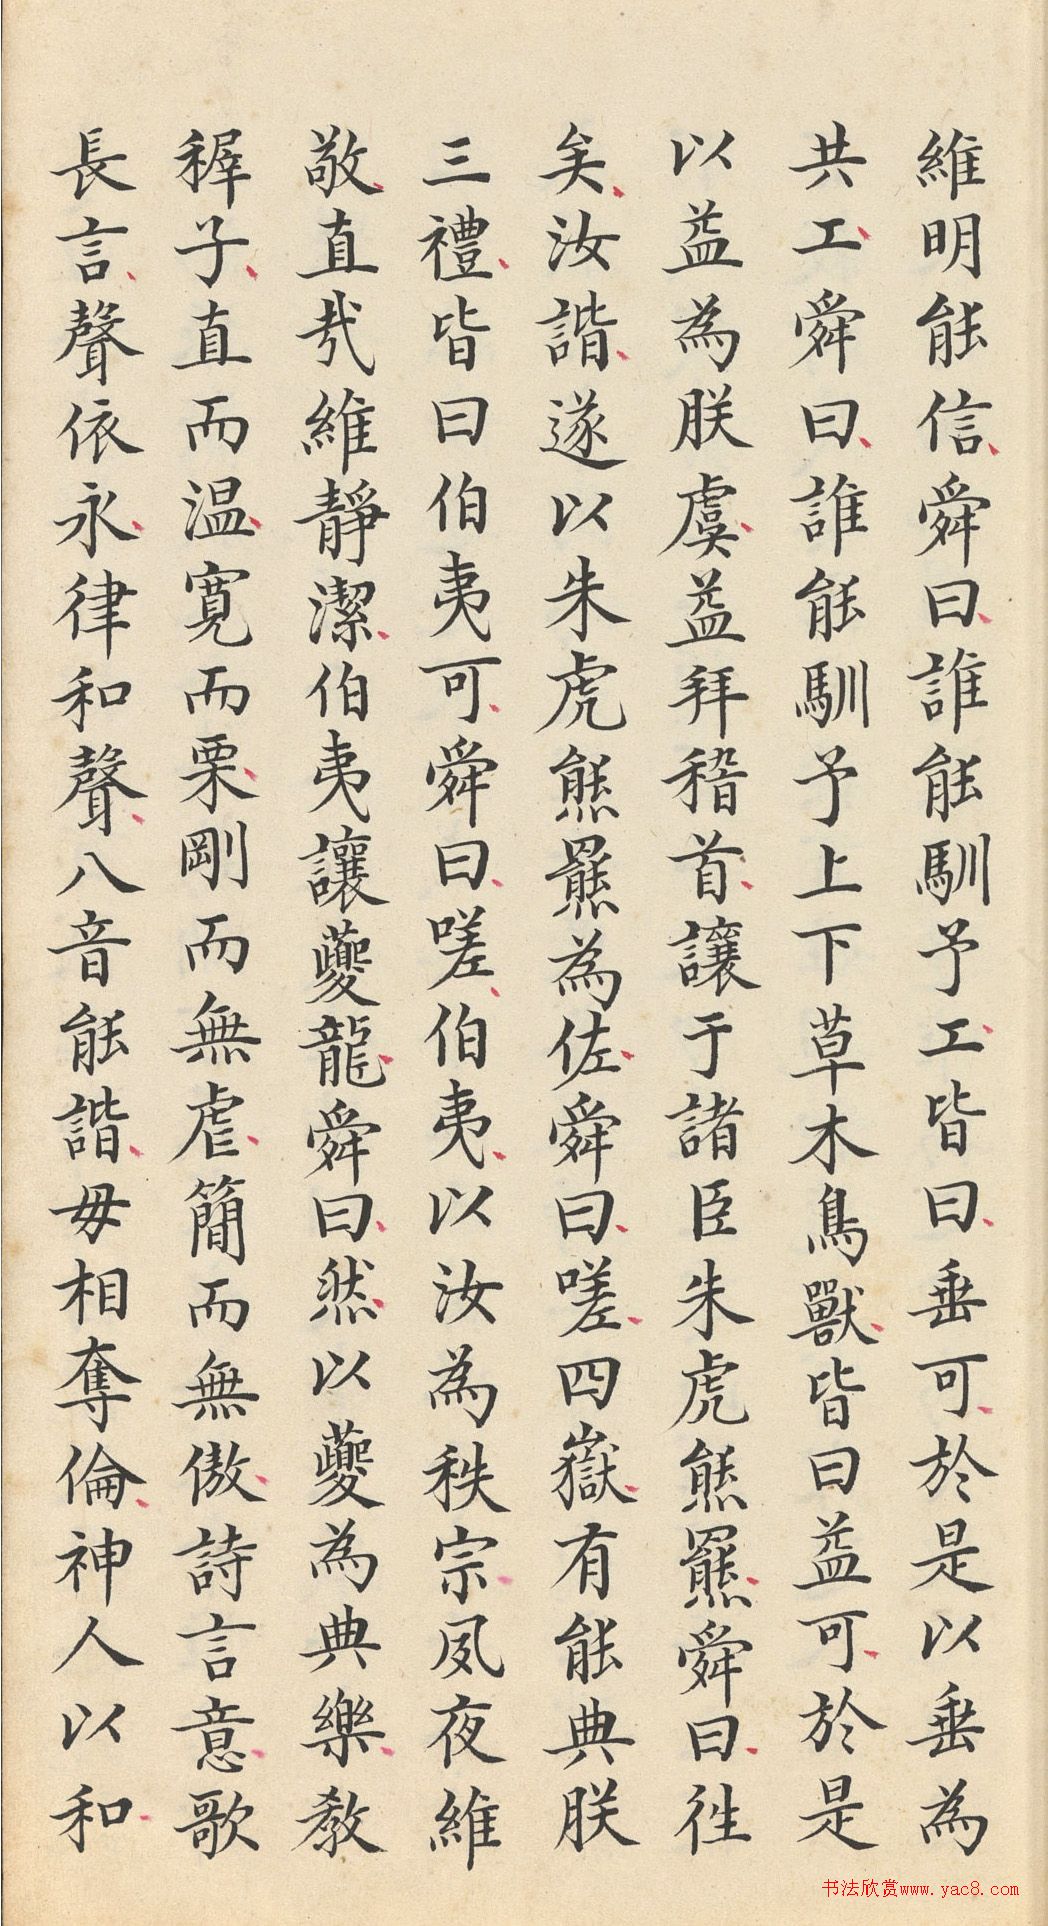 維明能信舜曰誰能馴予工皆曰垂可於是以垂為
共工舜曰誰能馴予上下草木鳥獸皆曰益可於是
以益為朕虞益拜稽首讓于諸臣朱虎熊羆舜曰往
矣汝諧遂以朱虎熊羆為佐舜曰嗟四嶽有能典朕
三禮皆曰伯夷可舜曰嗟伯夷以汝為秩宗夙夜維
敬直哉維靜潔伯夷讓夔龍舜曰然以夔為典樂教
稺子直而溫寬而栗剛而無虐簡而無傲詩言意歌
長言聲依永律和聲八音能諧毋相奪倫神人以和
书法欣赏www.yac8.com